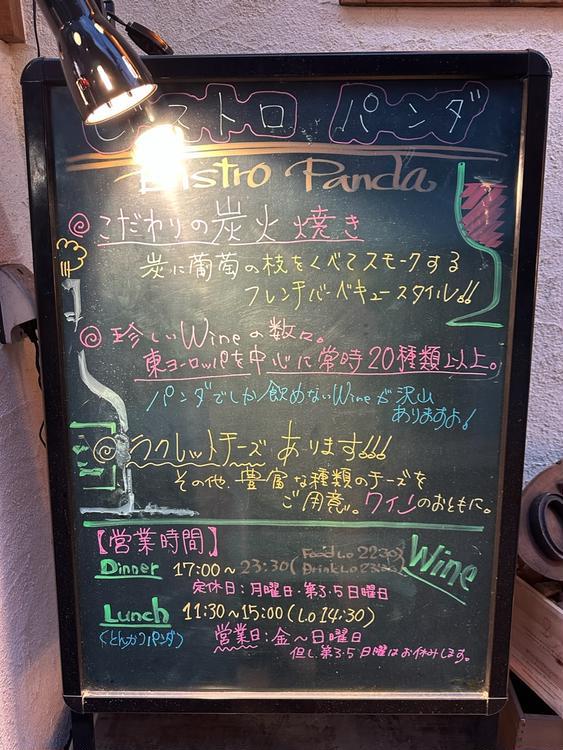 ビストロ パンダ
Bistro Panda
こだわりの炭火焼き
炭に葡萄の枝をくべてスモークする
フレンチバーベキュースタイル!!
珍しいWineの数々。
東ヨーロッパを中心に常時20種類以上。
パンダでしか飲めないWineが沢山
ありますよ!
ラクレットチーズあります!!!
その他、豊富な種類のチーズを
ご用意。ワインのおともに。
【営業時間】
Dinner 17:00~23:30(Food L.o 22:30
Drink L.o 23:00)
Wine
定休日:月曜日・第3.5日曜日
Lunch 11:30~15:00(L.o 14:30)
(とんかつパンダ) 営業日:金~日曜日
但し、第3.5日曜はお休みします。